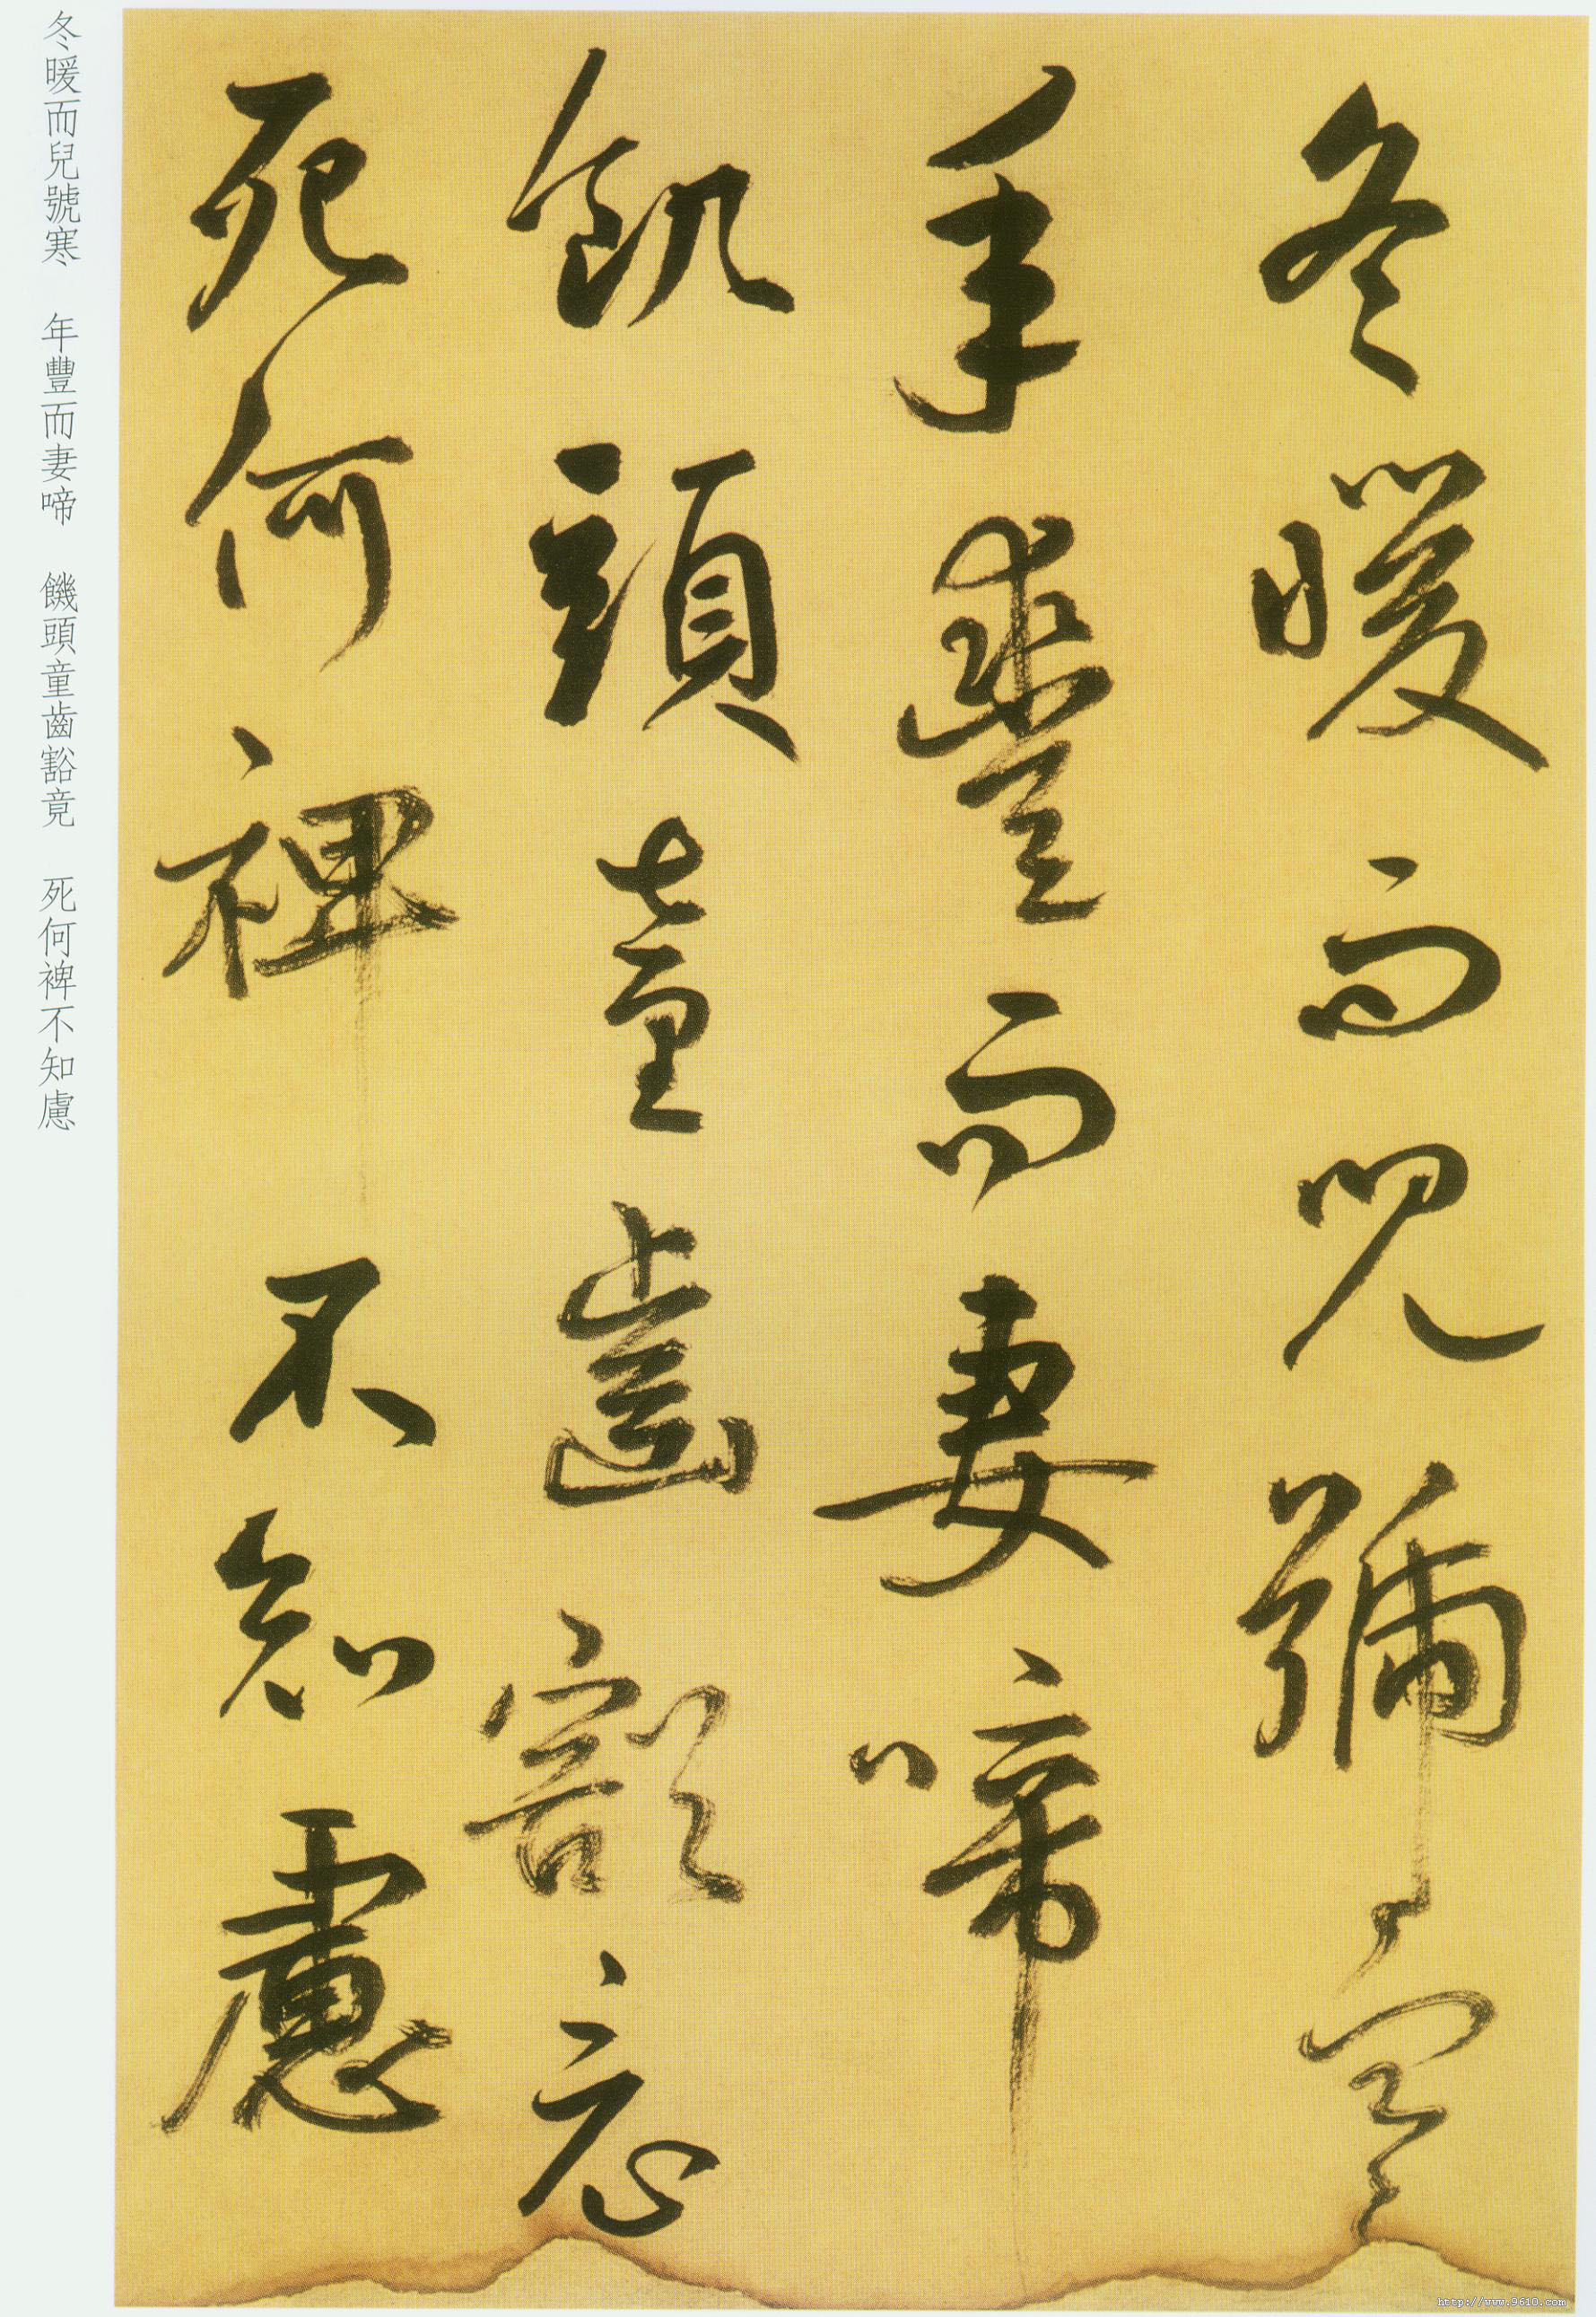 冬暖而兒號寒
年豐而妻啼
飢頭童齒豁竟
死何裨不知慮
冬暖而兒號寒　年豐而妻啼　饑頭童齒豁竟　死何裨不知慮
http://www.9610.com